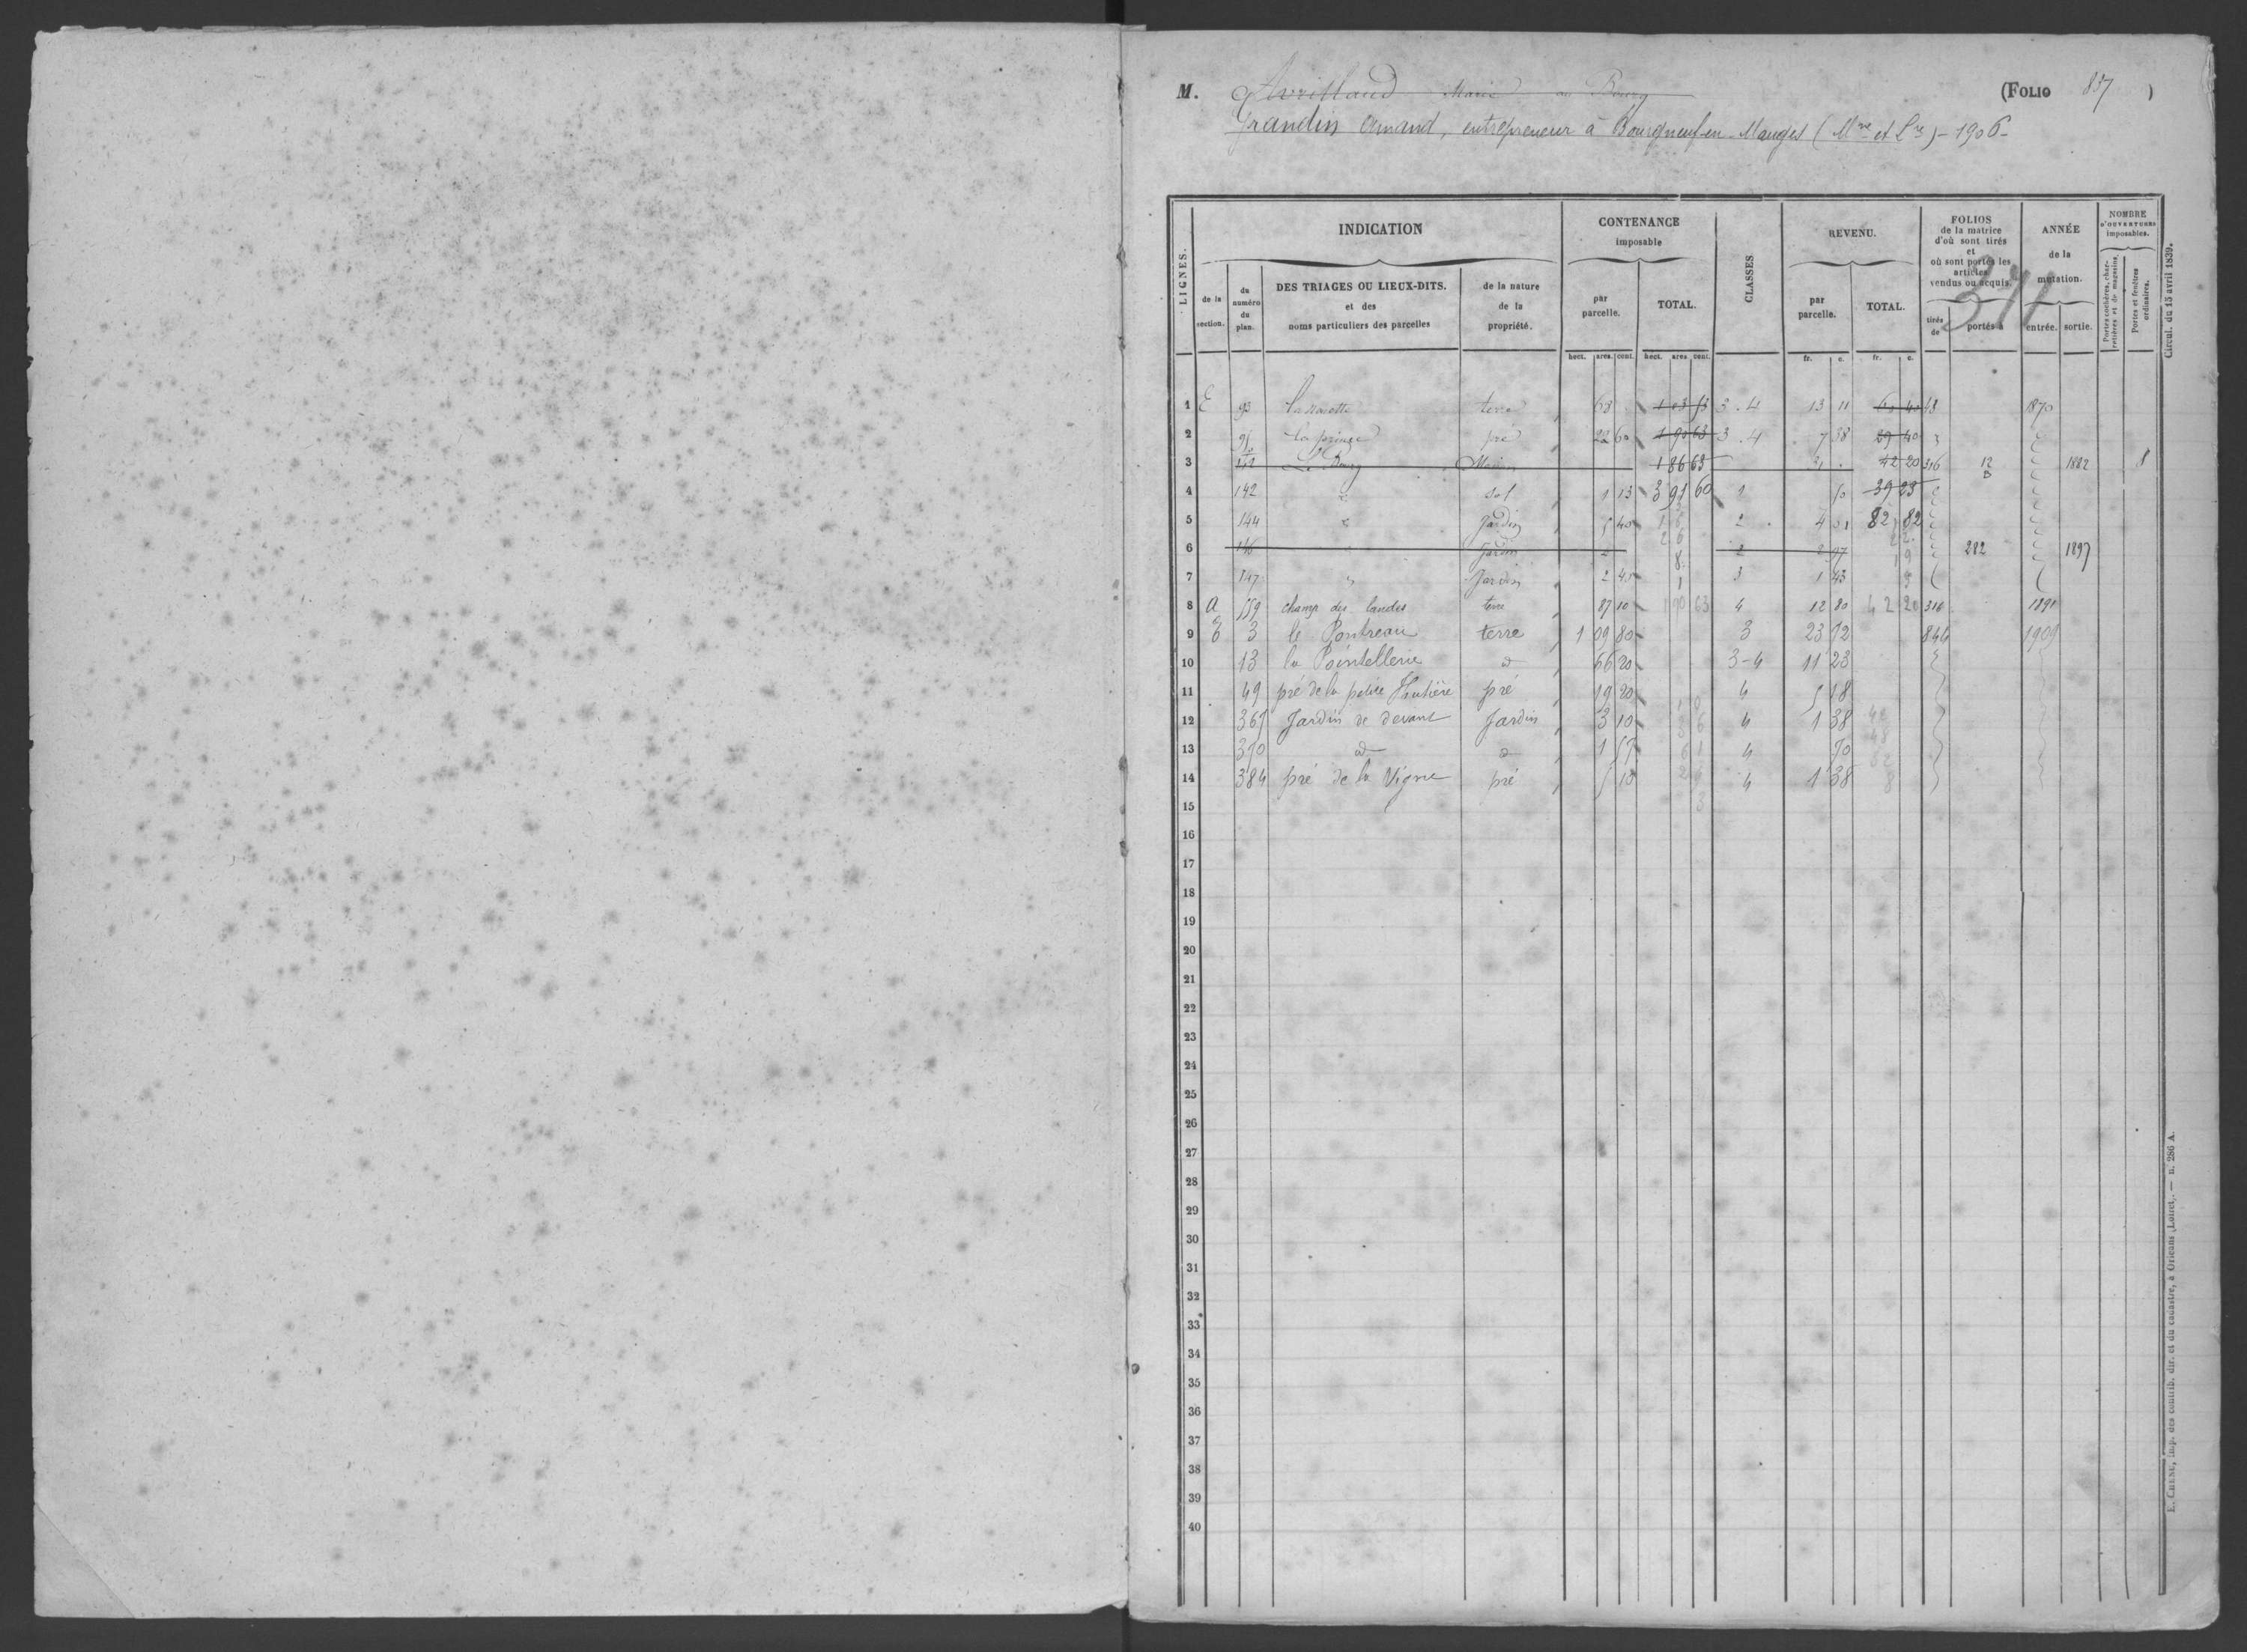 M. Avrillaud Marie au Bourg (FOLIO 857)
Grandin Amand, entrepreneur à Bourgneuf-en-Mauges (Mne et Lre) - 1906 -
LIGNES. INDICATION CONTENANCE imposable CLASSES REVENU. FOLIOS de la matrice d'où sont tirés et où sont portés les articles vendus ou acquis. ANNÉE de la mutation. NOMBRE D'OUVERTURES imposables.
de la section. du numéro du plan. DES TRIAGES OU LIEUX-DITS. et des noms particuliers des parcelles de la nature de la propriété. par parcelle. TOTAL. par parcelle. TOTAL. tirés de portés à entrée. sortie. Portes cochères, charretières et de magasins. Portes et fenêtres ordinaires.
371
hect. ares. cent. hect. ares cent. fr. c. fr. c.
1 E 93 terre 63 3.4 13 11 48 1870
2 pré 22 60 1 90 63 3.4 7 38 29 40
3 Le Bourg Maison 1 86 63 31 42 20 316 12 1882 8
4 142 " sol 1 13 3 91 60 1 39 23
5 144 " Jardin 5 40 2 4 01 82 82
6 146 " Jardin 2 2 97 282 1897
7 147 " Jardin 2 40 3 1 43
8 A 559 champ des landes terre 87 10 1 90 63 4 12 80 42 20 316 1891
9 E 3 le Pontreau terre 1 09 80 3 23 72 846 1909
10 13 la Pointellerie d 66 20 3-4 11 23
11 49 pré de la petite pré 19 20 4 5 18
12 369 Jardin de devant Jardin 3 10 4 1 38
13 370 d d 1 57 4 70
14 384 pré de la Vigne pré 5 10 4 1 38
15
16
17
18
19
20
21
22
23
24
25
26
27
28
29
30
31
32
33
34
35
36
37
38
39
40
Circul. du 15 avril 1839.
E. CHENU, imp. des contrib. dir. et du cadastre, à Orléans (Loiret). — n. 286 A.